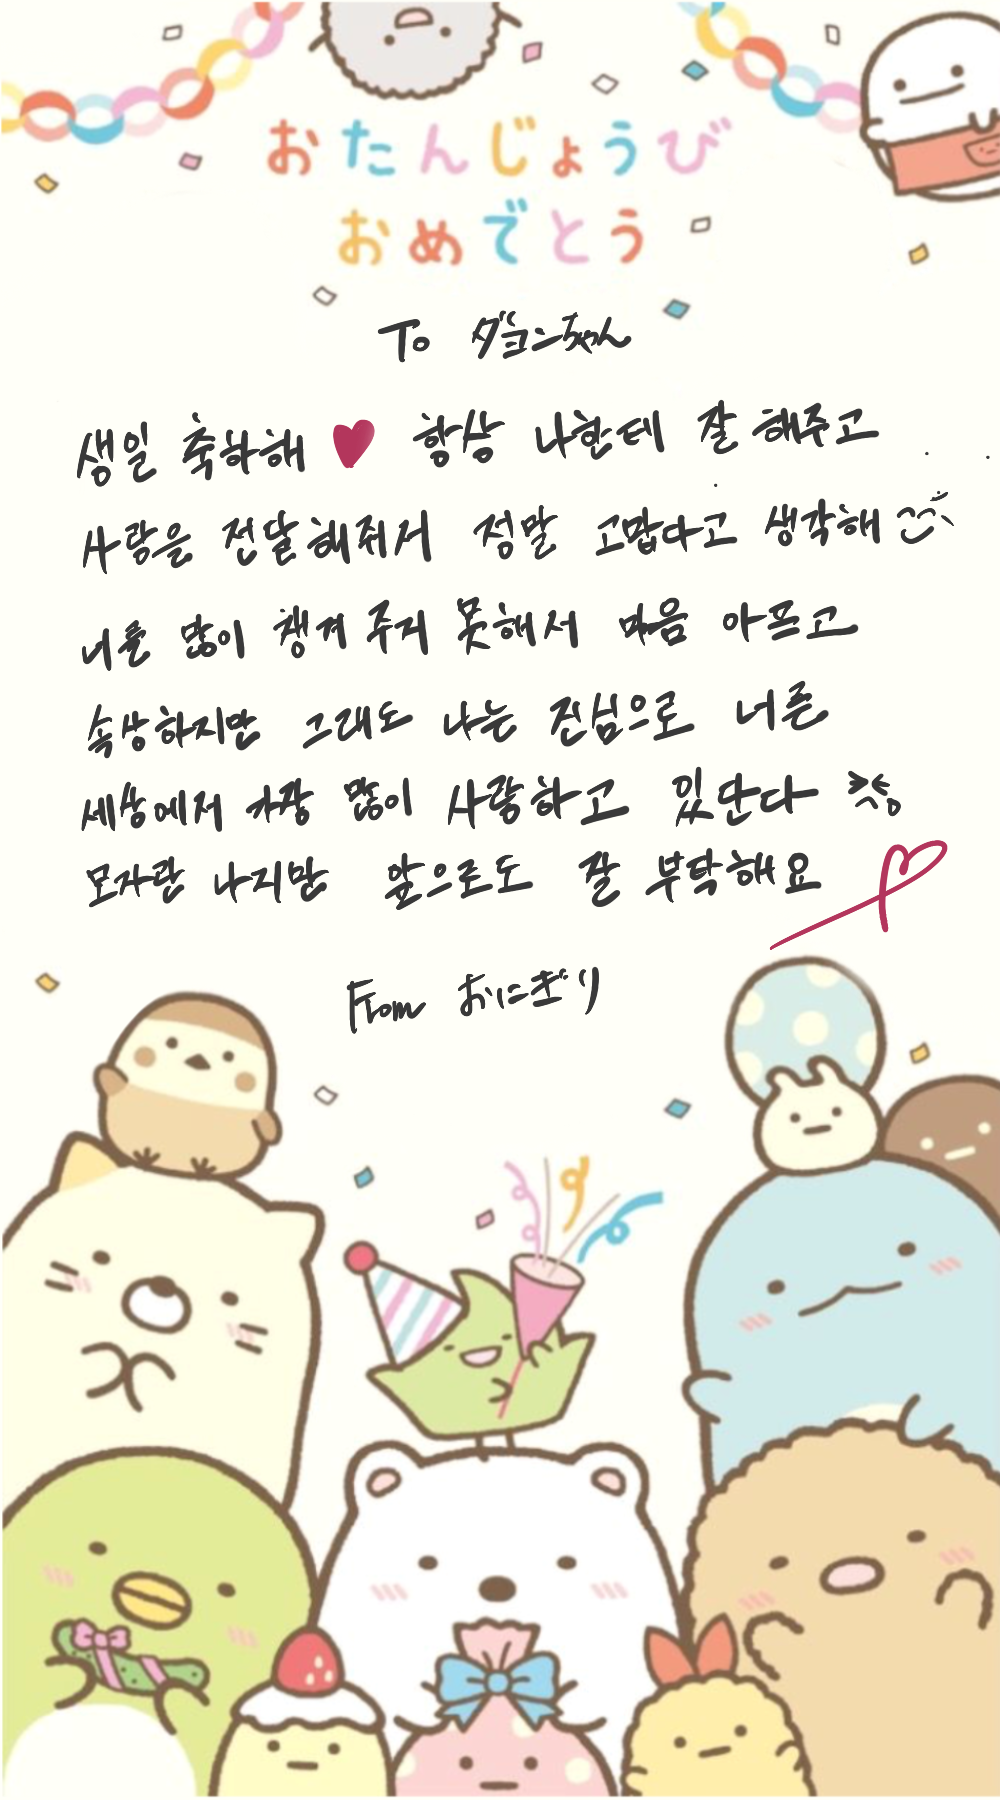 おたんじょうび
おめでとう
To ダヨンちゃん
생일 축하해 ♥ 항상 나한테 잘 해주고
사랑을 전달해줘서 정말 고맙다고 생각해
너를 많이 챙겨 주지 못해서 마음 아프고
속상하지만 그래도 나는 진심으로 너를
세상에서 가장 많이 사랑하고 있단다
모자란 나지만 앞으로도 잘 부탁해요
From おにぎり